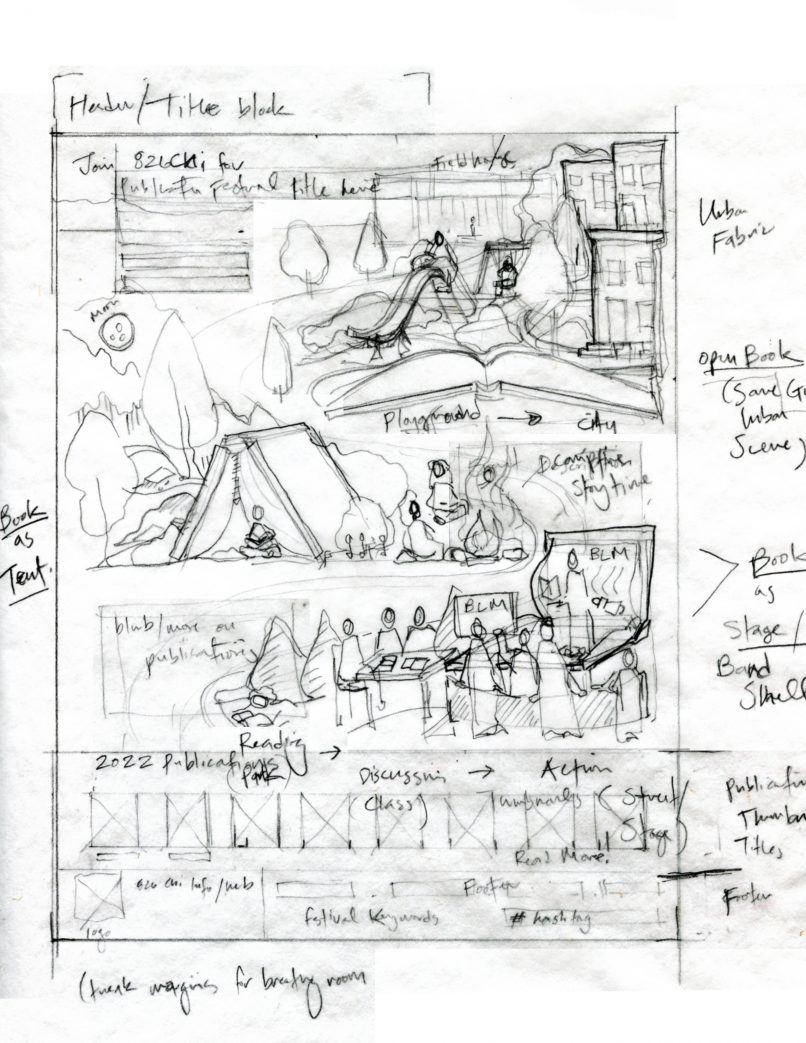 Header/Title block
Join 826CHI for
Publication Festival title here
Fieldhouse
Urban
Fabric
Moon
open Book
(Same
Urban
Scene)
Playground → City
Description
Storytime
Book
as
Tent.
BLM
BLM
Book
as
Stage/
Band
Shell
blurb/more on
publications
Reading →
(Park)
2022 Publications
Discussion →
(Class)
Action
(Street/
Stage)
Thumbnails
Read More.
Titles
826 CHI Info/web
Footer
Footer
Festival Keywords
# hashtag
logo
margins for breathing room